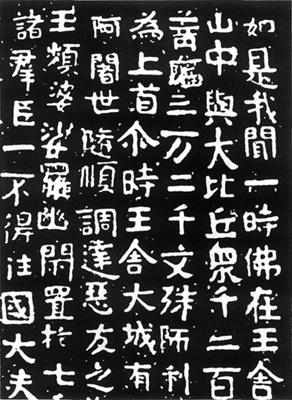 如是我聞一時佛在王舍
山中與大比丘眾千二百
菩薩三万二千文殊師利
為上首尒時王舍大城有
阿闍世隨順調達惡友之
王頻婆娑羅幽閉置於七
諸羣臣一不得往國大夫